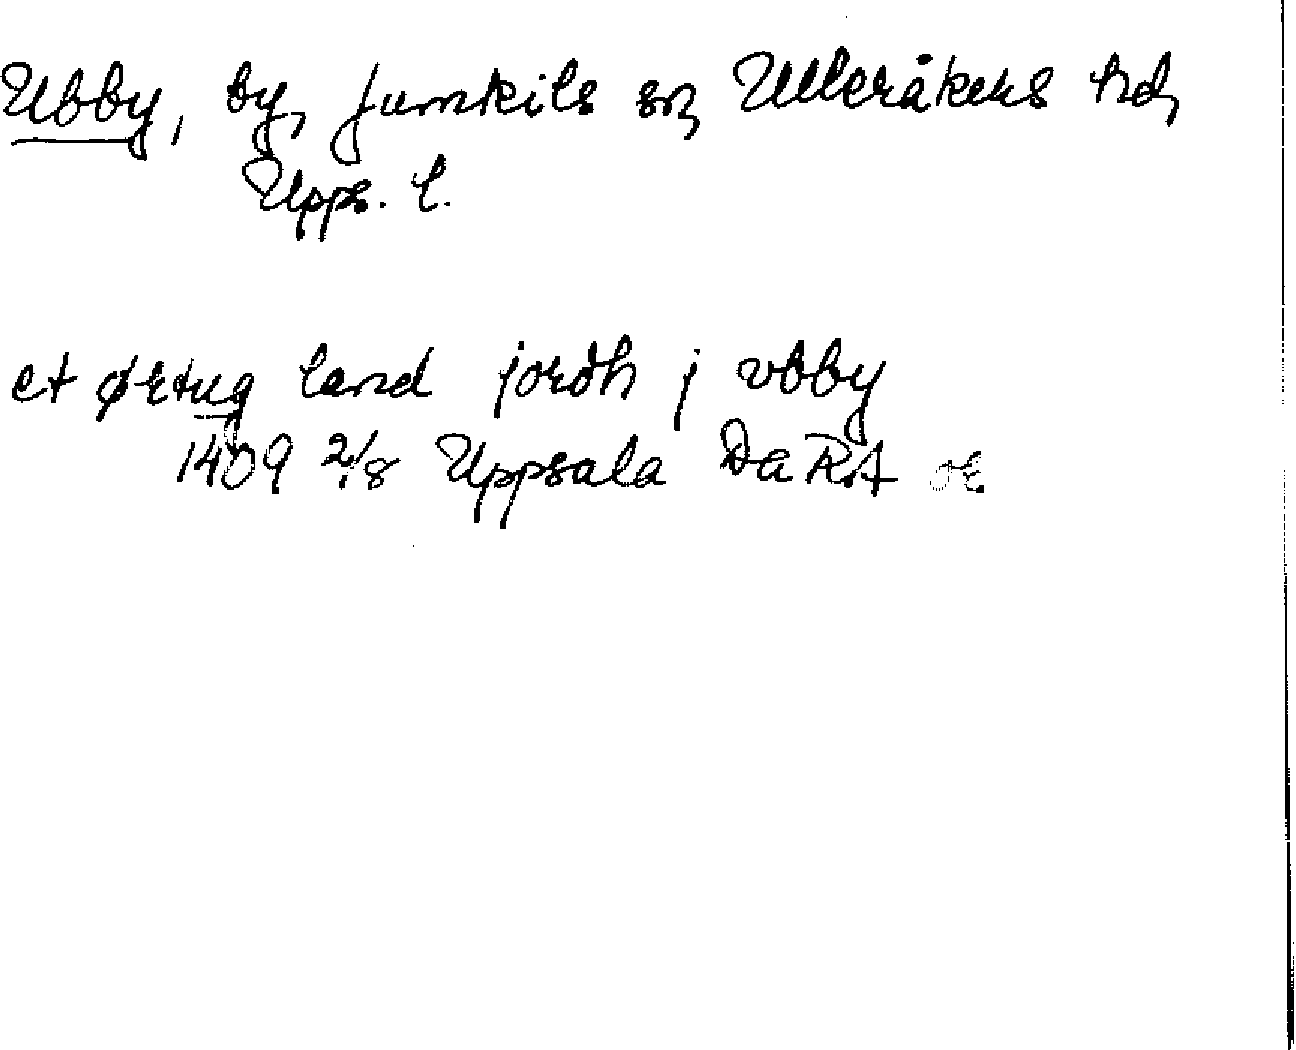 Ubby, by, Jumkils sn, Ulleråkers hd,
Upps. l.
et ørtug land jordh j vbby
1409 2/8 Uppsala Da RA or.